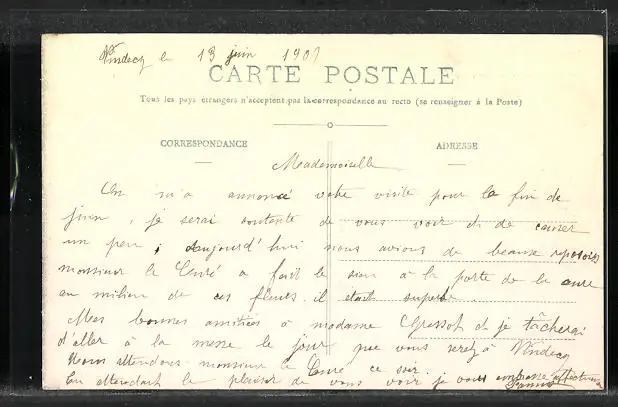 Vindecy le 13 juin 1907
CARTE POSTALE
Tous les pays étrangers n'acceptent pas la correspondance au recto (se renseigner à la Poste)
CORRESPONDANCE
ADRESSE
Mademoiselle
On m'a annoncé votre visite pour la fin de
juin, je serai contente de vous voir et de causer
un peu; aujourd'hui nous avions de beaux reposoirs
monsieur le Curé a fait le sien à la porte de la cure
au milieu de ces fleurs. il était superbe.
Mes bonnes amitiés à madame et je tâcherai
d'aller à la messe le jour que vous serez à Vindecy
Nous attendons monsieur le Curé ce soir.
En attendant le plaisir de vous voir je vous embrasse